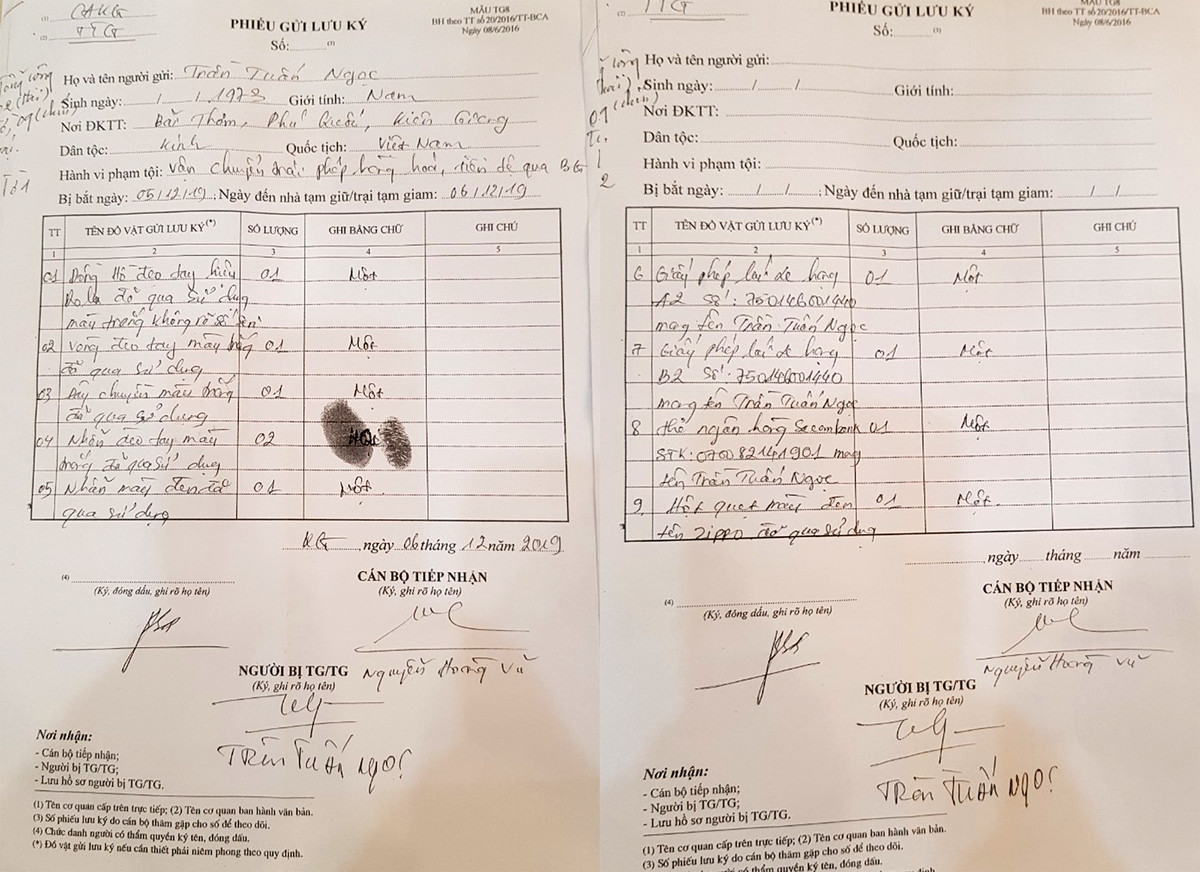 (1) CAKG
(2) TTG
PHIẾU GỬI LƯU KÝ
Số: (3)
MẪU TG8
BH theo TT số 20/2016/TT-BCA
Ngày 08/6/2016
Họ và tên người gửi: Trần Tuấn Ngọc
Sinh ngày: / /.1973 Giới tính: Nam
Nơi ĐKTT: Phú Quốc, Kiên Giang
Dân tộc: Kinh Quốc tịch: Việt Nam
Hành vi phạm tội: Vận chuyển trái phép hàng hoá, tiền tệ qua BG
Bị bắt ngày: 05/12/19; Ngày đến nhà tạm giữ/trại tạm giam: 06/12/19
TT TÊN ĐỒ VẬT GỬI LƯU KÝ(*) SỐ LƯỢNG GHI BẰNG CHỮ GHI CHÚ
1 2 3 4 5
01 Đồng hồ đeo tay hiệu 01 Một
đã qua sử dụng
màu trắng không rõ số
02 Vòng đeo tay màu trắng 01 Một
đã qua sử dụng
03 Dây chuyền màu trắng 01 Một
đã qua sử dụng
04 Nhẫn đeo tay màu 02 Hai
trắng đã qua sử dụng
05 Nhẫn màu đen đã 01 Một
qua sử dụng
KG, ngày 06 tháng 12 năm 2019
(4)
(Ký, đóng dấu, ghi rõ họ tên)
CÁN BỘ TIẾP NHẬN
(Ký, ghi rõ họ tên)
Nguyễn Hoàng Vũ
NGƯỜI BỊ TG/TG
(Ký, ghi rõ họ tên)
TRẦN TUẤN NGỌC
Nơi nhận:
- Cán bộ tiếp nhận;
- Người bị TG/TG;
- Lưu hồ sơ người bị TG/TG.
(1) Tên cơ quan cấp trên trực tiếp; (2) Tên cơ quan ban hành văn bản.
(3) Số phiếu lưu ký do cán bộ thăm gặp cho số để theo dõi.
(4) Chức danh người có thẩm quyền ký tên, đóng dấu.
(*) Đồ vật gửi lưu ký nếu cần thiết phải niêm phong theo quy định.
(2) TTG
PHIẾU GỬI LƯU KÝ
Số: (3)
MẪU TG8
BH theo TT số 20/2016/TT-BCA
Ngày 08/6/2016
Họ và tên người gửi:
Sinh ngày: / / Giới tính:
Nơi ĐKTT:
Dân tộc: Quốc tịch:
Hành vi phạm tội:
Bị bắt ngày: / / ; Ngày đến nhà tạm giữ/trại tạm giam: / /
TT TÊN ĐỒ VẬT GỬI LƯU KÝ(*) SỐ LƯỢNG GHI BẰNG CHỮ GHI CHÚ
1 2 3 4 5
6 Giấy phép lái xe hạng 01 Một
A2 Số: 750146001440
mang tên Trần Tuấn Ngọc
7 Giấy phép lái xe hạng 01 Một
B2 Số: 750146001440
mang tên Trần Tuấn Ngọc
8 thẻ ngân hàng Sacombank 01 Một
STK: mang
tên Trần Tuấn Ngọc
9 Hột quẹt màu đen 01 Một
tên Zippo đã qua sử dụng
, ngày tháng năm
(4)
(Ký, đóng dấu, ghi rõ họ tên)
CÁN BỘ TIẾP NHẬN
(Ký, ghi rõ họ tên)
Nguyễn Hoàng Vũ
NGƯỜI BỊ TG/TG
(Ký, ghi rõ họ tên)
TRẦN TUẤN NGỌC
Nơi nhận:
- Cán bộ tiếp nhận;
- Người bị TG/TG;
- Lưu hồ sơ người bị TG/TG.
(1) Tên cơ quan cấp trên trực tiếp; (2) Tên cơ quan ban hành văn bản.
(3) Số phiếu lưu ký do cán bộ thăm gặp cho số để theo dõi.
(4) Chức danh người có thẩm quyền ký tên, đóng dấu.